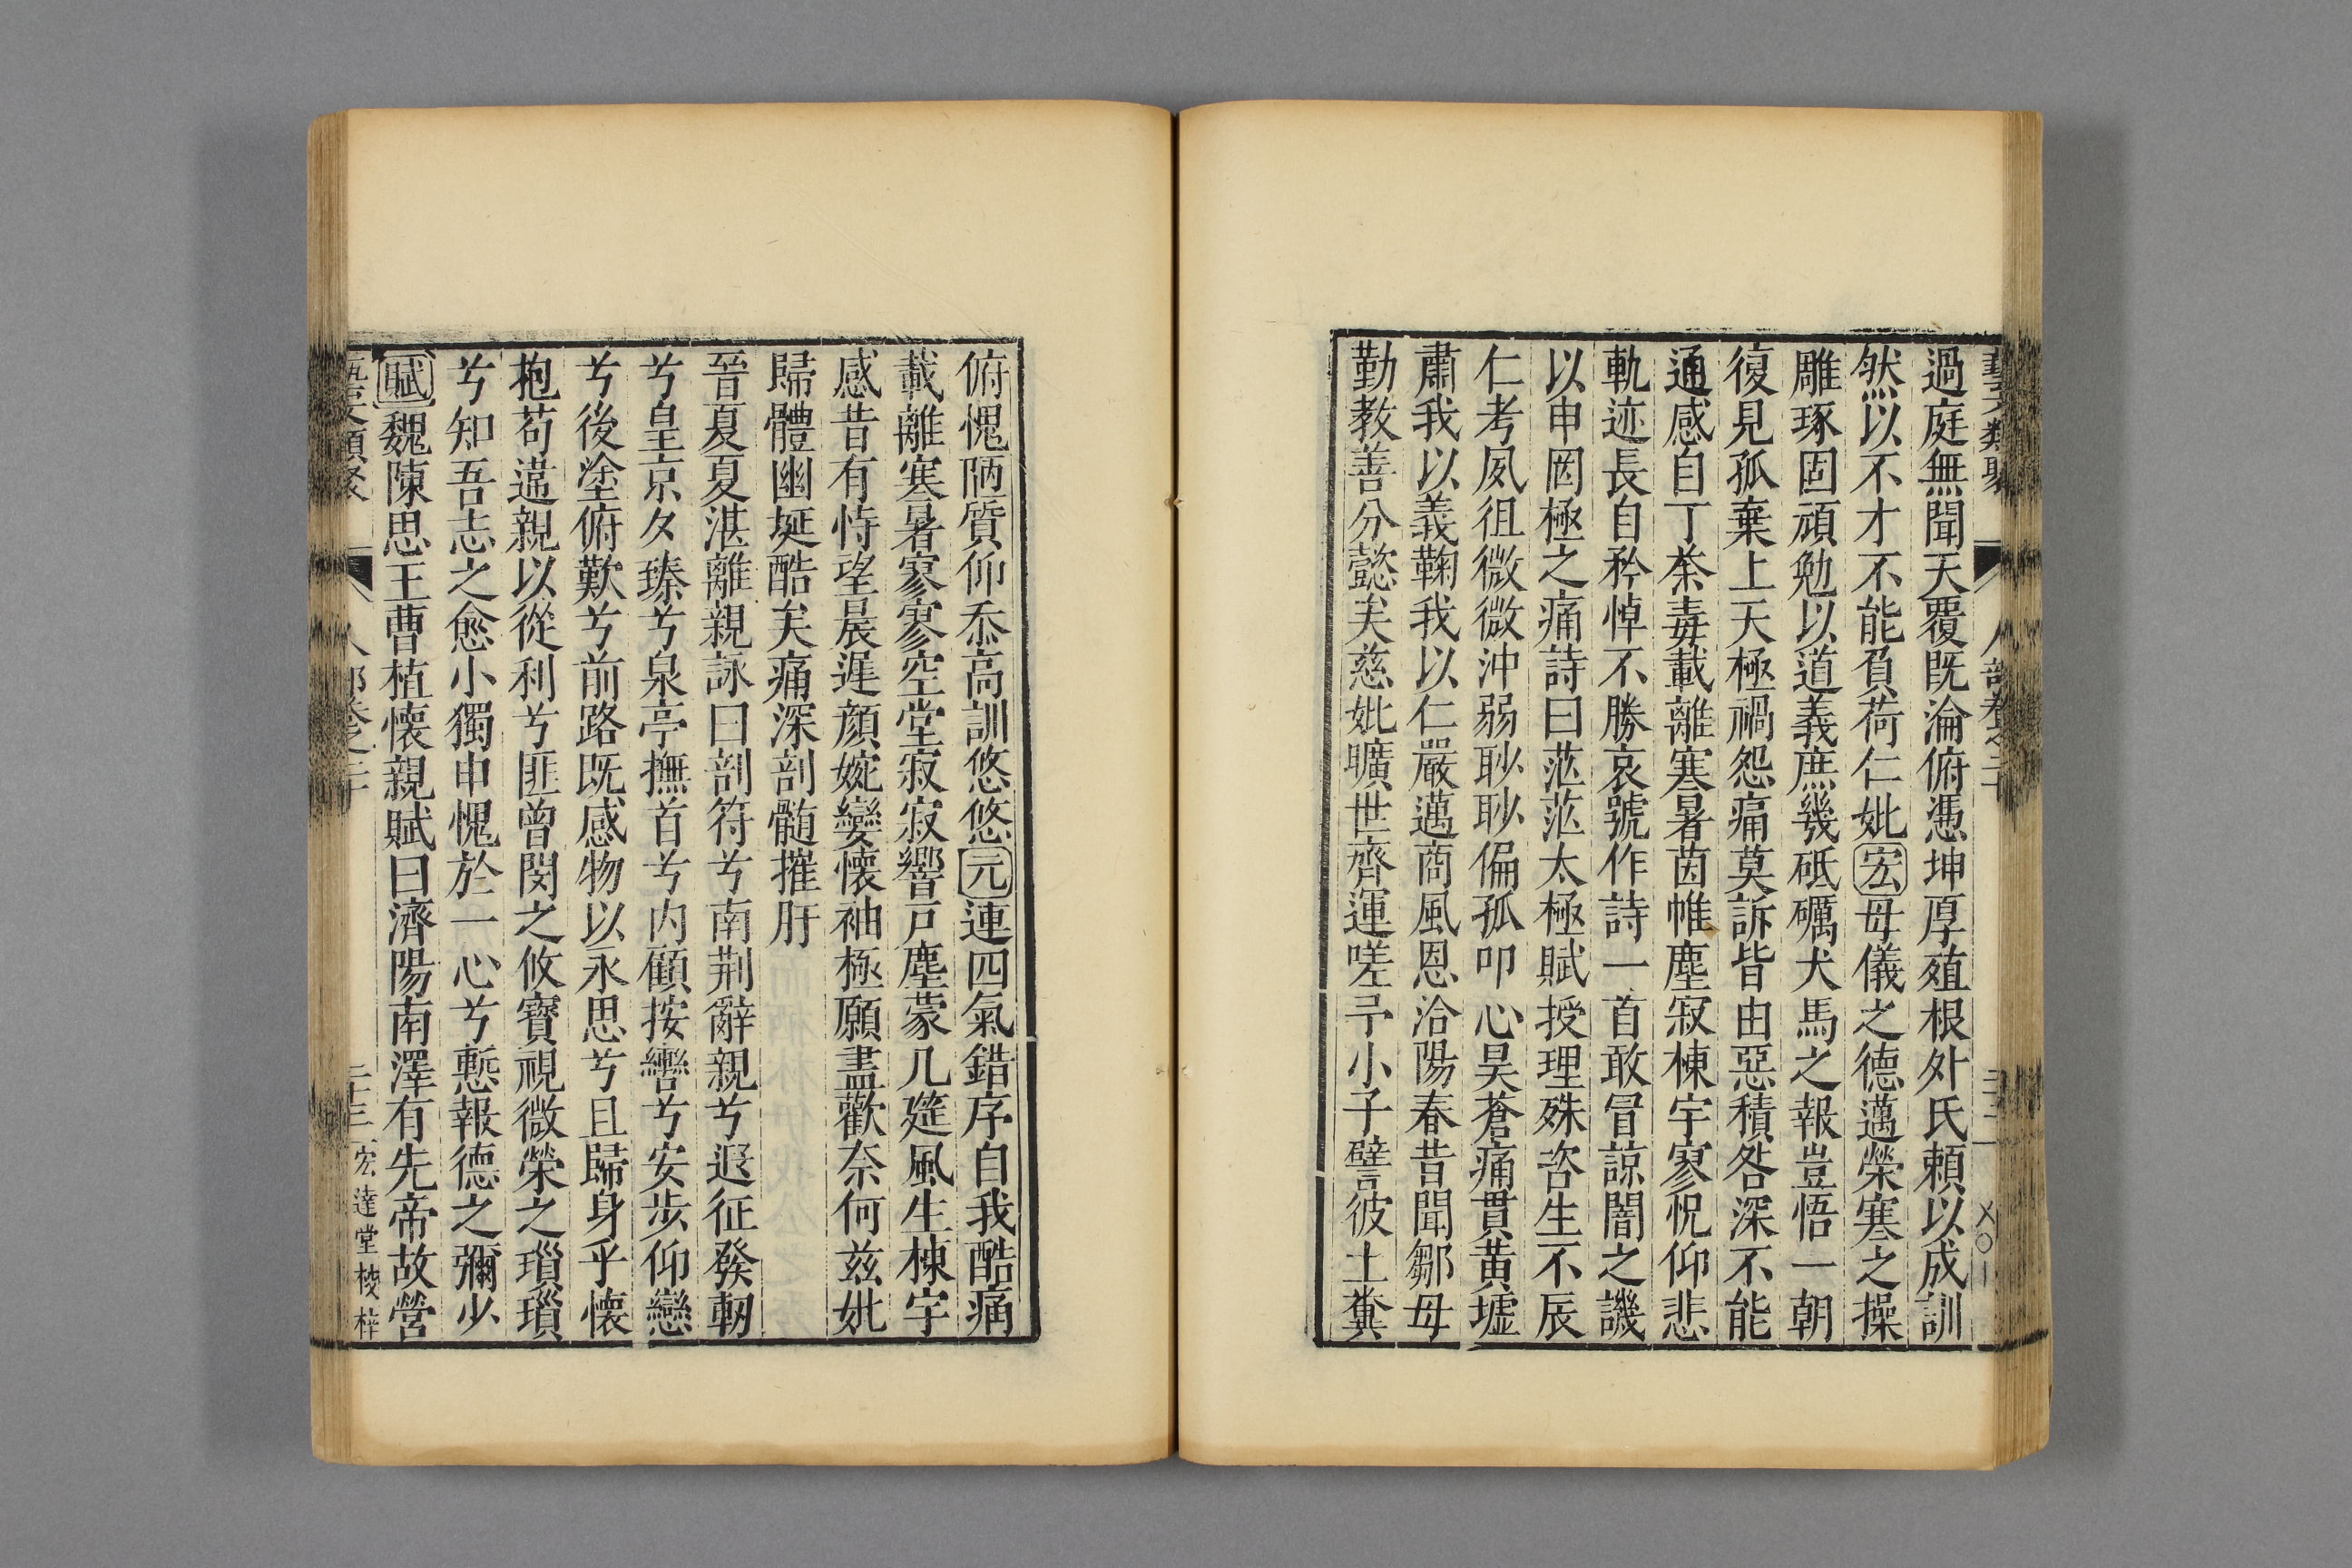 過庭無聞天覆既淪俯憑坤厚殖根外氏賴以成訓
然以不才不能負荷仁妣宏母儀之德邁榮寒之操
雕琢固頑勉以道義庶幾砥礪犬馬之報豈悟一朝
復見孤棄上天極禍怨痛莫訴皆由惡積咎深不能
通感自丁荼毒載離寒暑茵帷塵寂棟宇寥怳仰悲
軌迹長自矜悼不勝哀號作詩一首敢冒諒闇之譏
以申罔極之痛詩曰茫茫太極賦授理殊咨生不辰
仁考夙徂微微沖弱眇眇偏孤叩心昊蒼痛貫黃墟
肅我以義鞠我以仁嚴邁商風恩洽陽春昔聞鄒母
勤教善分懿矣慈妣曠世齊運嗟予小子譬彼土糞
俯愧陋質仰忝高訓悠悠元運四氣錯序自我酷痛
載離寒暑寥寥空堂寂寂響戶塵蒙几筵風生棟宇
感昔有恃望晨遲顏婉孌懷袖極願盡歡奈何茲妣
歸體幽埏酷矣痛深剖髓摧肝
晉夏夏湛離親詠曰剖符兮南荆辭親兮遐征發軔
兮皇京夕臻兮泉亭撫首兮內顧按轡兮安步仰戀
兮後塗俯歎兮前路既感物以永思兮且歸身乎懷
抱苟違親以從利兮匪曾閔之攸寶視微榮之瑣瑣
兮知吾志之愈小獨申愧於一心兮慙報德之彌少
賦魏陳思王曹植懷親賦曰濟陽南澤有先帝故營
藝文類聚 人部卷之二十 二十三 宏達堂校梓